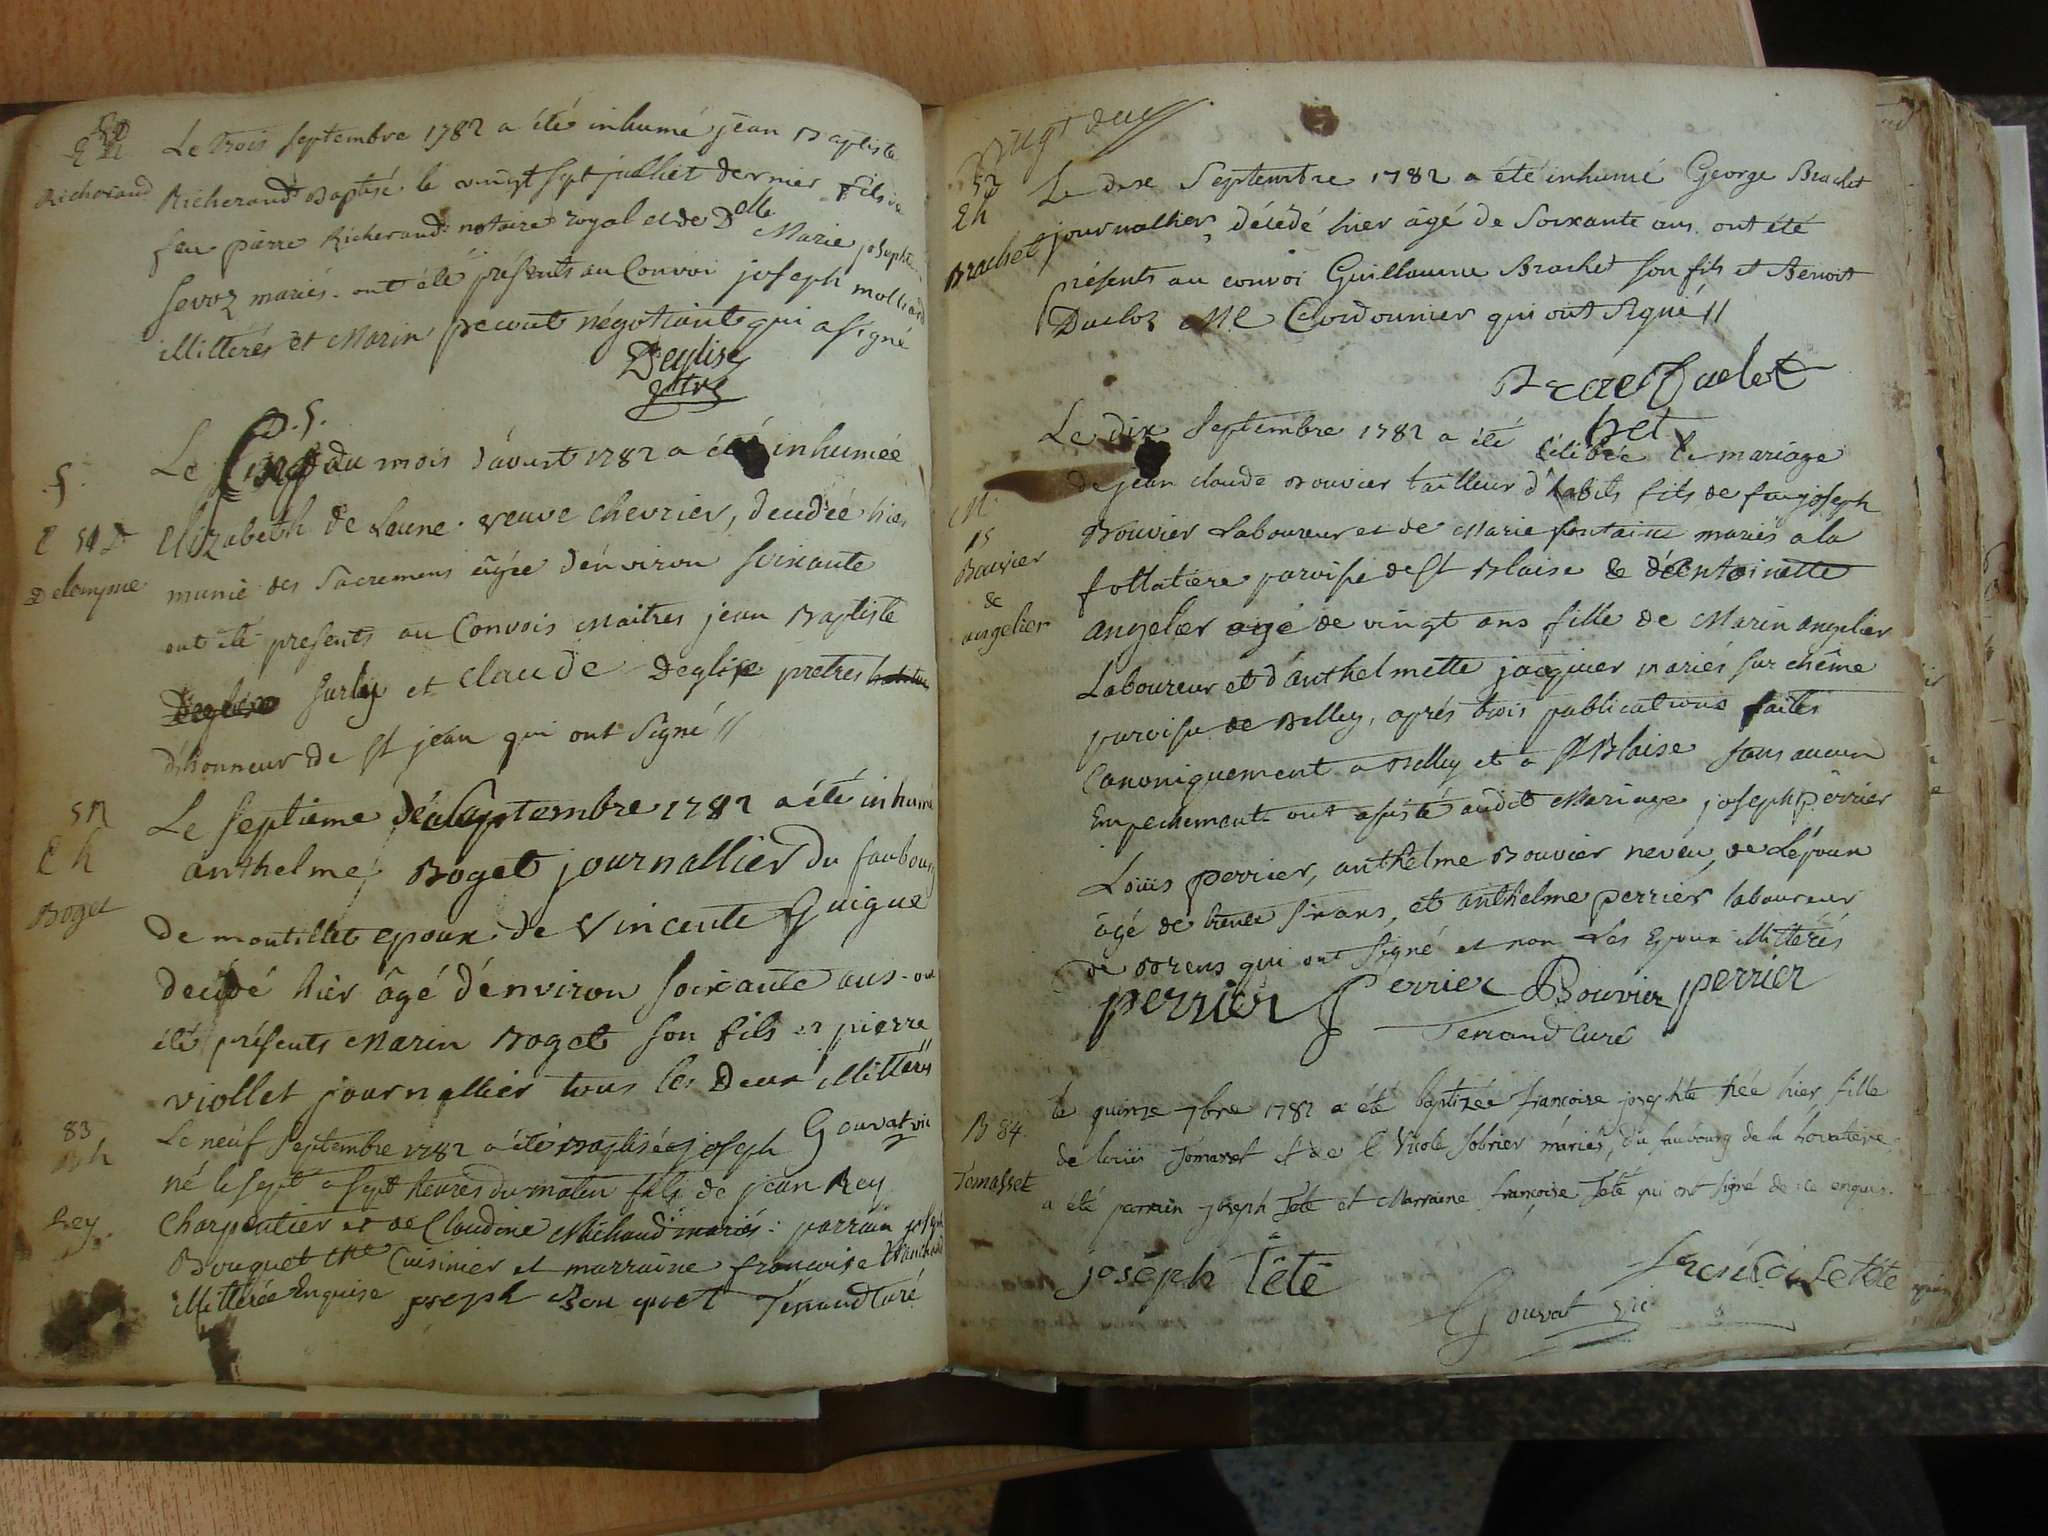 Richerand
Le trois septembre 1782 a été inhumé jean Baptiste
Richerand Baptisé le vingt sept juillet dernier fils de
feu pierre Richerand notaire royal et de Delle Marie josephte
sevoz mariés. ont été présents au Convoi joseph molliard
illitterés et Marin pecout négotiants qui a signé
Deglise
ptre
5.
Le Cinq du mois d'avut 1782 a été inhumée
5.
Elizabeth de Laune veuve chevrier, decedée hier
munie des sacremens âgée d'environ soixante
ont été presents au Convois Maitres jean Baptiste
surlin et claude Deglise pretres
d'honneur de st jean qui ont signé //
52
E h
Boget
Le septieme de septembre 1782 a été inhumé
anthelme Boget journallier du faubourg
de montillet epoux de Vincente Guigue
decedé hier âgé d'environ soixante ans. ont
été présents Marin Boget son fils et pierre
viollet journallier tous les Deux illitterés
Gouvat vic
83
B h
Rey
Le neuf septembre 1782 a été Baptisé joseph
né le sept a sept heures du matin fils de jean Rey
Charpentier et de Claudine Michaud mariés: parrain joseph
Bouquet me Cuisinier et marraine francoise
illitterée enquise joseph Bouquet Ferrand Curé
Vingt deux
53
E h
Brachet
Le dix Septembre 1782 a été inhumé George Brachet
journallier, décédé hier âgé de Soixante ans. ont été
présents au convoi Guillaume Brachet son fils et Benoit
Ducloz Me Cordonnier qui ont signé //
Brac
het
M
15
Bouvier
&
angelier
Le dix Septembre 1782 a été célébré le mariage
de jean claude Bouvier tailleur d'habits fils de feu joseph
Bouvier Laboureur et de Marie fontaine mariés a la
follatiere parroisse de st Blaise & d'entoinette
angelier agé de vingt ans fille de Marin angelier
Laboureur et d'anthelmette jacquier mariés sur chême
parroisse de Belley, aprés trois publications faites
Canoniquement a Belley et a st Blaise sans aucun
Empechement ont assisté audit Mariage joseph perrier
Louis perrier, anthelme Bouvier neveu de Lépoux
âgé de trente six ans, et anthelme perrier laboureur
de Brens qui ont signé et non Les Epoux illitterés
perrier Perrier Bouvier perrier
Ferrand Curé
B 84.
Tomasset
le quinze 7bre 1782 a été baptizée francoise josephte née hier fille
de louis Tomasset et de Nicole sobrier mariés, du faubourg de la
a été parrain joseph Tété et Marraine françoise Tété qui ont signé de ce enquis.
joséph Tété
Gouvat vic